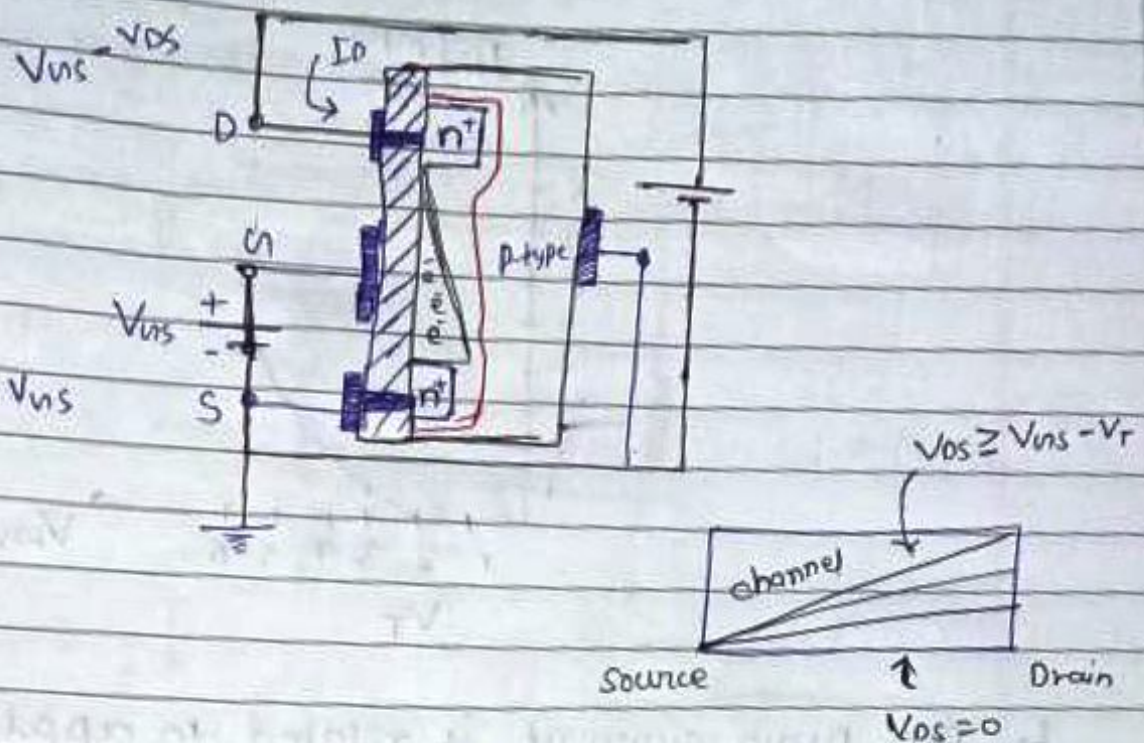 VDS
VGS
ID
D
n+
G
p-type
+
VGS
-
e- e- e-
VGS
S
n+
VDS ≥ VGS - VT
channel
Source
Drain
VDS = 0
VT